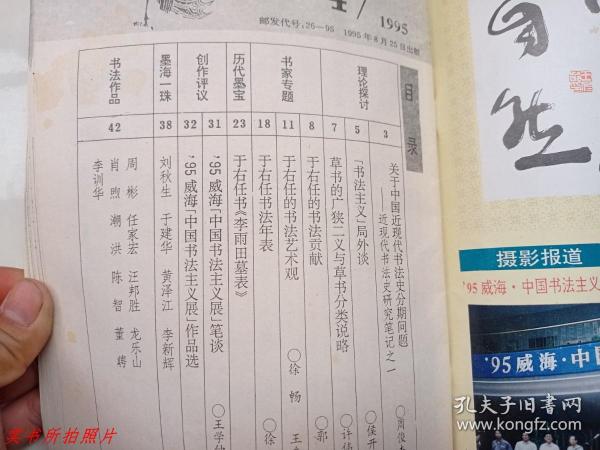 1995
邮发代号:26—95 1995年8月25日出刊
目录
理论探讨
3 关于中国近现代书法史分期问题
——近现代书法史研究笔记之一
5 「书法主义」局外谈
7 草书的广狭二义与草书分类说略
书家专题
8 于右任的书法贡献
11 于右任的书法艺术观 ○徐 畅 王
18 于右任书法年表 ○徐
历代墨宝
23 于右任书《李雨田墓表》
创作评议
31 '95威海「中国书法主义展」笔谈 ○王学
32 '95威海「中国书法主义展」作品选
墨海一珠
38 刘秋生 于建华 黄泽江 李新辉
书法作品
42 周 彬 任家宏 汪邦胜 龙乐山
肖 煦 潮 洪 陈 智 董 骋
李训华
自然
摄影报道
'95威海·中国书法主义
'95威海·中国
孔夫子旧书网
卖书所拍照片